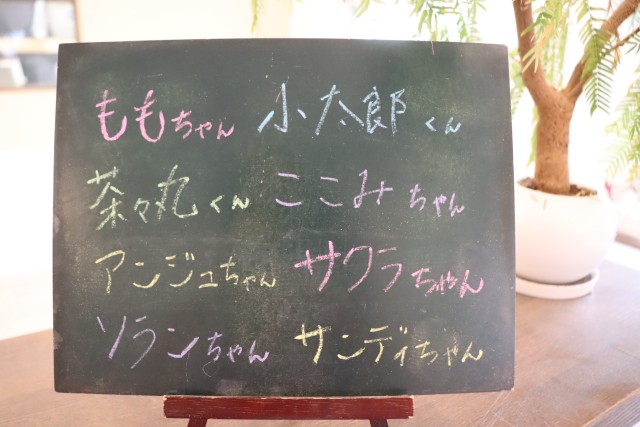 ももちゃん 小太郎くん
茶々丸くん ここみちゃん
アンジュちゃん サクラちゃん
ソランちゃん サンディちゃん